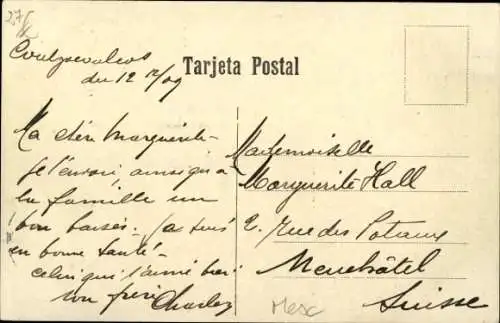 du 12 12/09
Tarjeta Postal
Ma chère Marguerite
je t'envoie ainsi qu'a
la famille un
bon baiser. Je suis
en bonne santé
celui qui t'aime bien
ton frère Charley
Mademoiselle
Marguerite Hall
2. Rue des Poteaux
Neuchâtel
Suisse
Mex